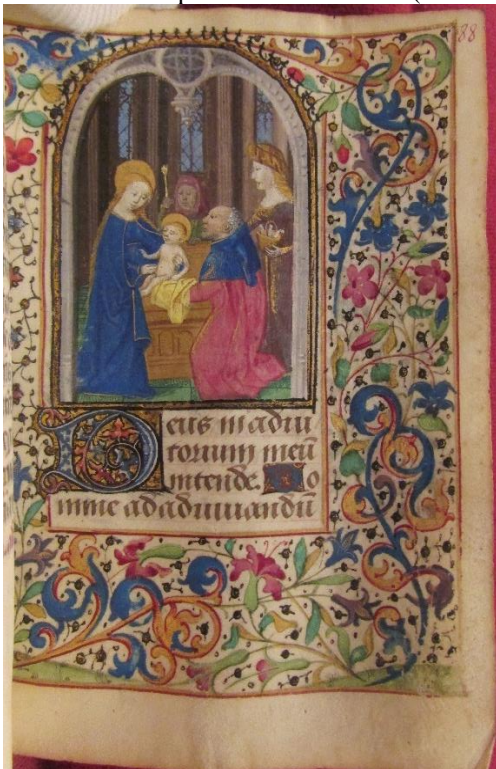 88
Deus in adiu
torium meū
intende. Do
mine ad adiuuandū